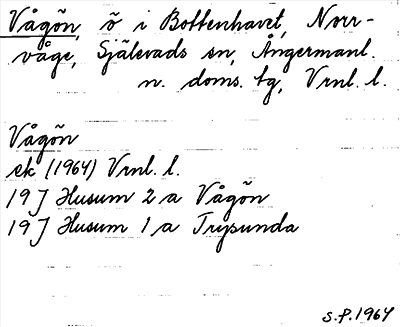 Vågön, ö i Bottenhavet, Norr-
våge, Själevads sn, Ångermanl.
n. doms. tg, Vrnl. l.
Vågön
ek (1964) Vrnl. l.
19J Husum 2a Vågön
19J Husum 1a Trysunda
S.F. 1964